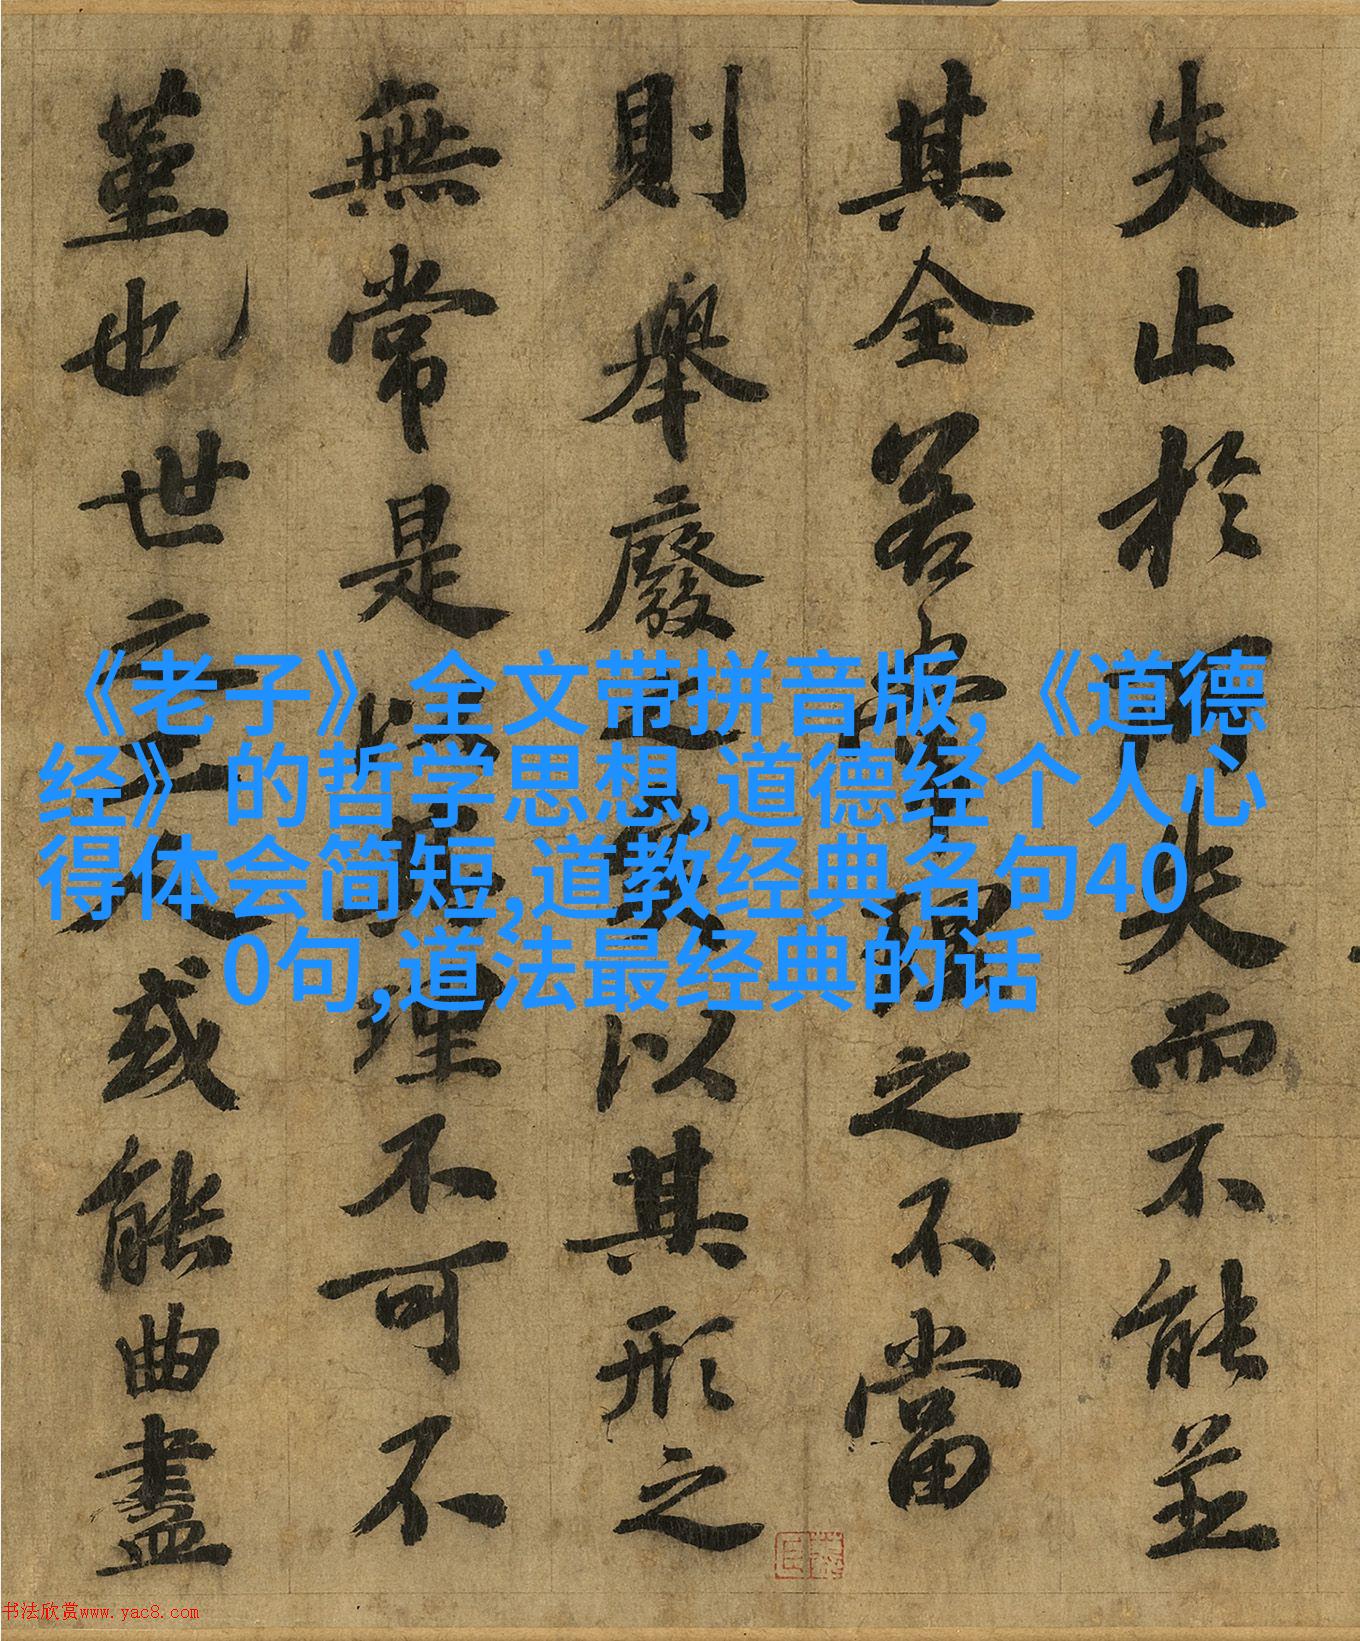 失止於所失而不能病
其全若常理之不當
則舉廢之矣以其形之
無常是以其理不可不
堇也世之工人或能曲盡
《老子》全文带拼音版,《道德
经》的哲学思想,道德经个人心
得体会简短,道教经典名句40
0句,道法最经典的话
书法欣赏www.yac8.com